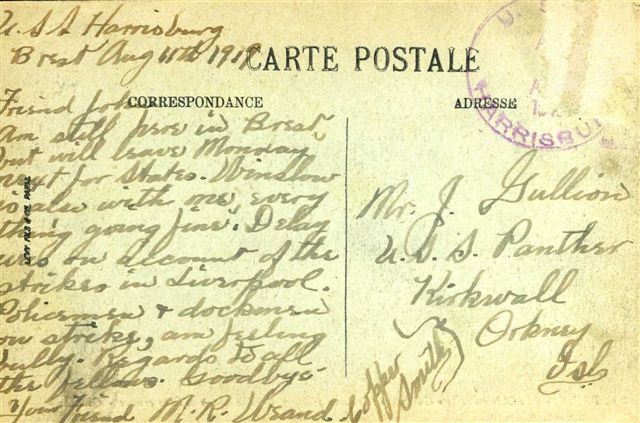 U.S.S Harrisburg
Brest Aug 10th 1919
CARTE POSTALE
CORRESPONDANCE
ADRESSE
Friend John
Am still here in Brest,
but will leave Monday
next for States. Winslow
is also with me, every
thing going fine. Delay
was on account of the
strikes in Liverpool.
Policemen & dockmen
on strike, am feeling
bully. Regards to all
the fellows. Goodbye.
Your Friend M.R. Weand.
Copper
Smith
Mr. J. Gullion
U.S.S. Panther
Kirkwall
Orkney
Isl
U.S.
HARRISBU
LEVY FILS & CIE, PARIS